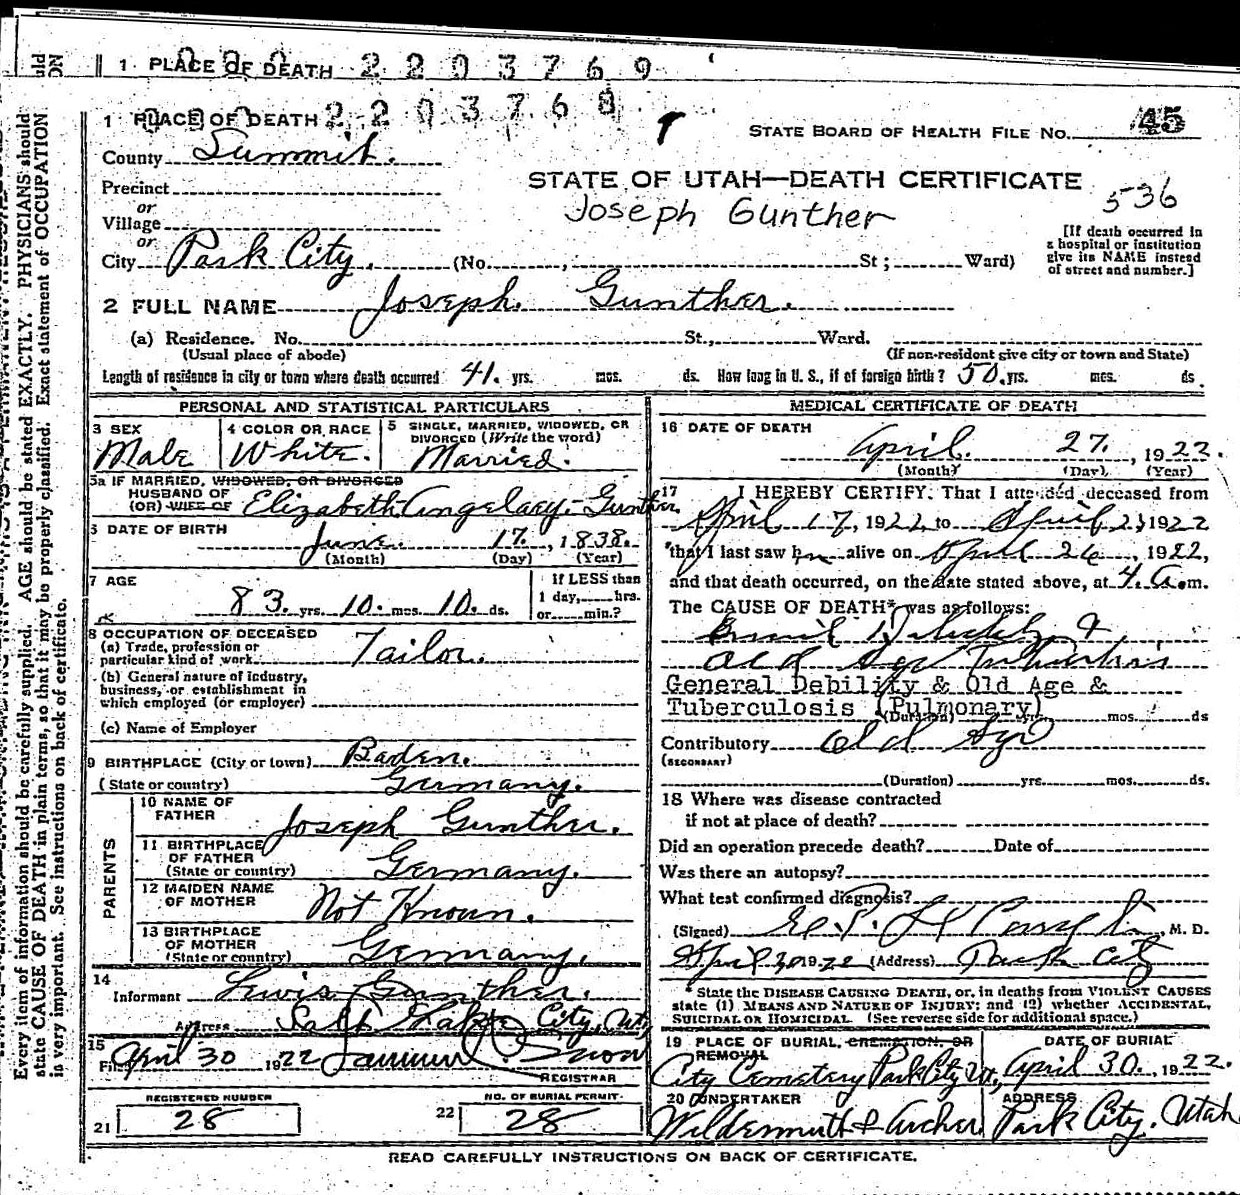 1 PLACE OF DEATH 2203769
1 PLACE OF DEATH 2203768
STATE BOARD OF HEALTH FILE No. 45
County Summit.
Precinct
or
Village
or
City Park City. (No. , St ; Ward)
STATE OF UTAH—DEATH CERTIFICATE
536
Joseph Gunther
[If death occurred in
a hospital or institution
give its NAME instead
of street and number.]
2 FULL NAME Joseph Gunther.
(a) Residence. No. St., Ward.
(Usual place of abode) (If non-resident give city or town and State)
Length of residence in city or town where death occurred 41. yrs. mos. ds. How long in U. S., if of foreign birth? 50. yrs. mos. ds.
PERSONAL AND STATISTICAL PARTICULARS
3 SEX
Male
4 COLOR OR RACE
White.
5 SINGLE, MARRIED, WIDOWED, OR
DIVORCED (Write the word)
Married.
5a IF MARRIED, WIDOWED, OR DIVORCED
HUSBAND OF
(OR) WIFE OF Elizabeth Gunther
6 DATE OF BIRTH
June. 17. , 1838.
(Month) (Day) (Year)
7 AGE
83. yrs. 10. mos. 10. ds.
If LESS than
1 day, hrs.
or min.?
8 OCCUPATION OF DECEASED
(a) Trade, profession or
particular kind of work. Tailor.
(b) General nature of industry,
business, or establishment in
which employed (or employer)
(c) Name of Employer
9 BIRTHPLACE (City or town) Baden.
(State or country) Germany.
PARENTS
10 NAME OF
FATHER Joseph Gunther.
11 BIRTHPLACE
OF FATHER
(State or country) Germany.
12 MAIDEN NAME
OF MOTHER Not Known.
13 BIRTHPLACE
OF MOTHER
(State or country) Germany.
14
Informant Lewis Gunther.
Address Salt Lake City, Ut,
15
Filed April 30 1922 Snow
REGISTRAR
REGISTERED NUMBER
21 28
NO. OF BURIAL PERMIT
22 28
MEDICAL CERTIFICATE OF DEATH
16 DATE OF DEATH
April. 27. , 1922.
(Month) (Day) (Year)
17 I HEREBY CERTIFY. That I attended deceased from
April 17, 1922 to April 1922
that I last saw h alive on April 26, 1922,
and that death occurred, on the date stated above, at 4. a. m.
The CAUSE OF DEATH* was as follows:
old Age
General Debility & Old Age &
Tuberculosis (Pulmonary)
(Duration) yrs. mos. ds
Contributory old Age
(SECONDARY)
(Duration) yrs. mos. ds.
18 Where was disease contracted
if not at place of death?
Did an operation precede death? Date of
Was there an autopsy?
What test confirmed diagnosis?
(Signed) , M. D.
April 30 1922 (Address) Park City
* State the DISEASE CAUSING DEATH, or, in deaths from VIOLENT CAUSES
state (1) MEANS AND NATURE OF INJURY; and (2) whether ACCIDENTAL,
SUICIDAL OR HOMICIDAL. (See reverse side for additional space.)
19 PLACE OF BURIAL, CREMATION, OR
REMOVAL
City Cemetery Park City Ut,
DATE OF BURIAL
April 30. , 1922.
20 UNDERTAKER
Wildermuth & Archer.
ADDRESS
Park City. Utah
READ CAREFULLY INSTRUCTIONS ON BACK OF CERTIFICATE.
Every item of information should be carefully supplied. AGE should be stated EXACTLY. PHYSICIANS should
state CAUSE OF DEATH in plain terms, so that it may be properly classified. Exact statement of OCCUPATION
is very important. See instructions on back of certificate.